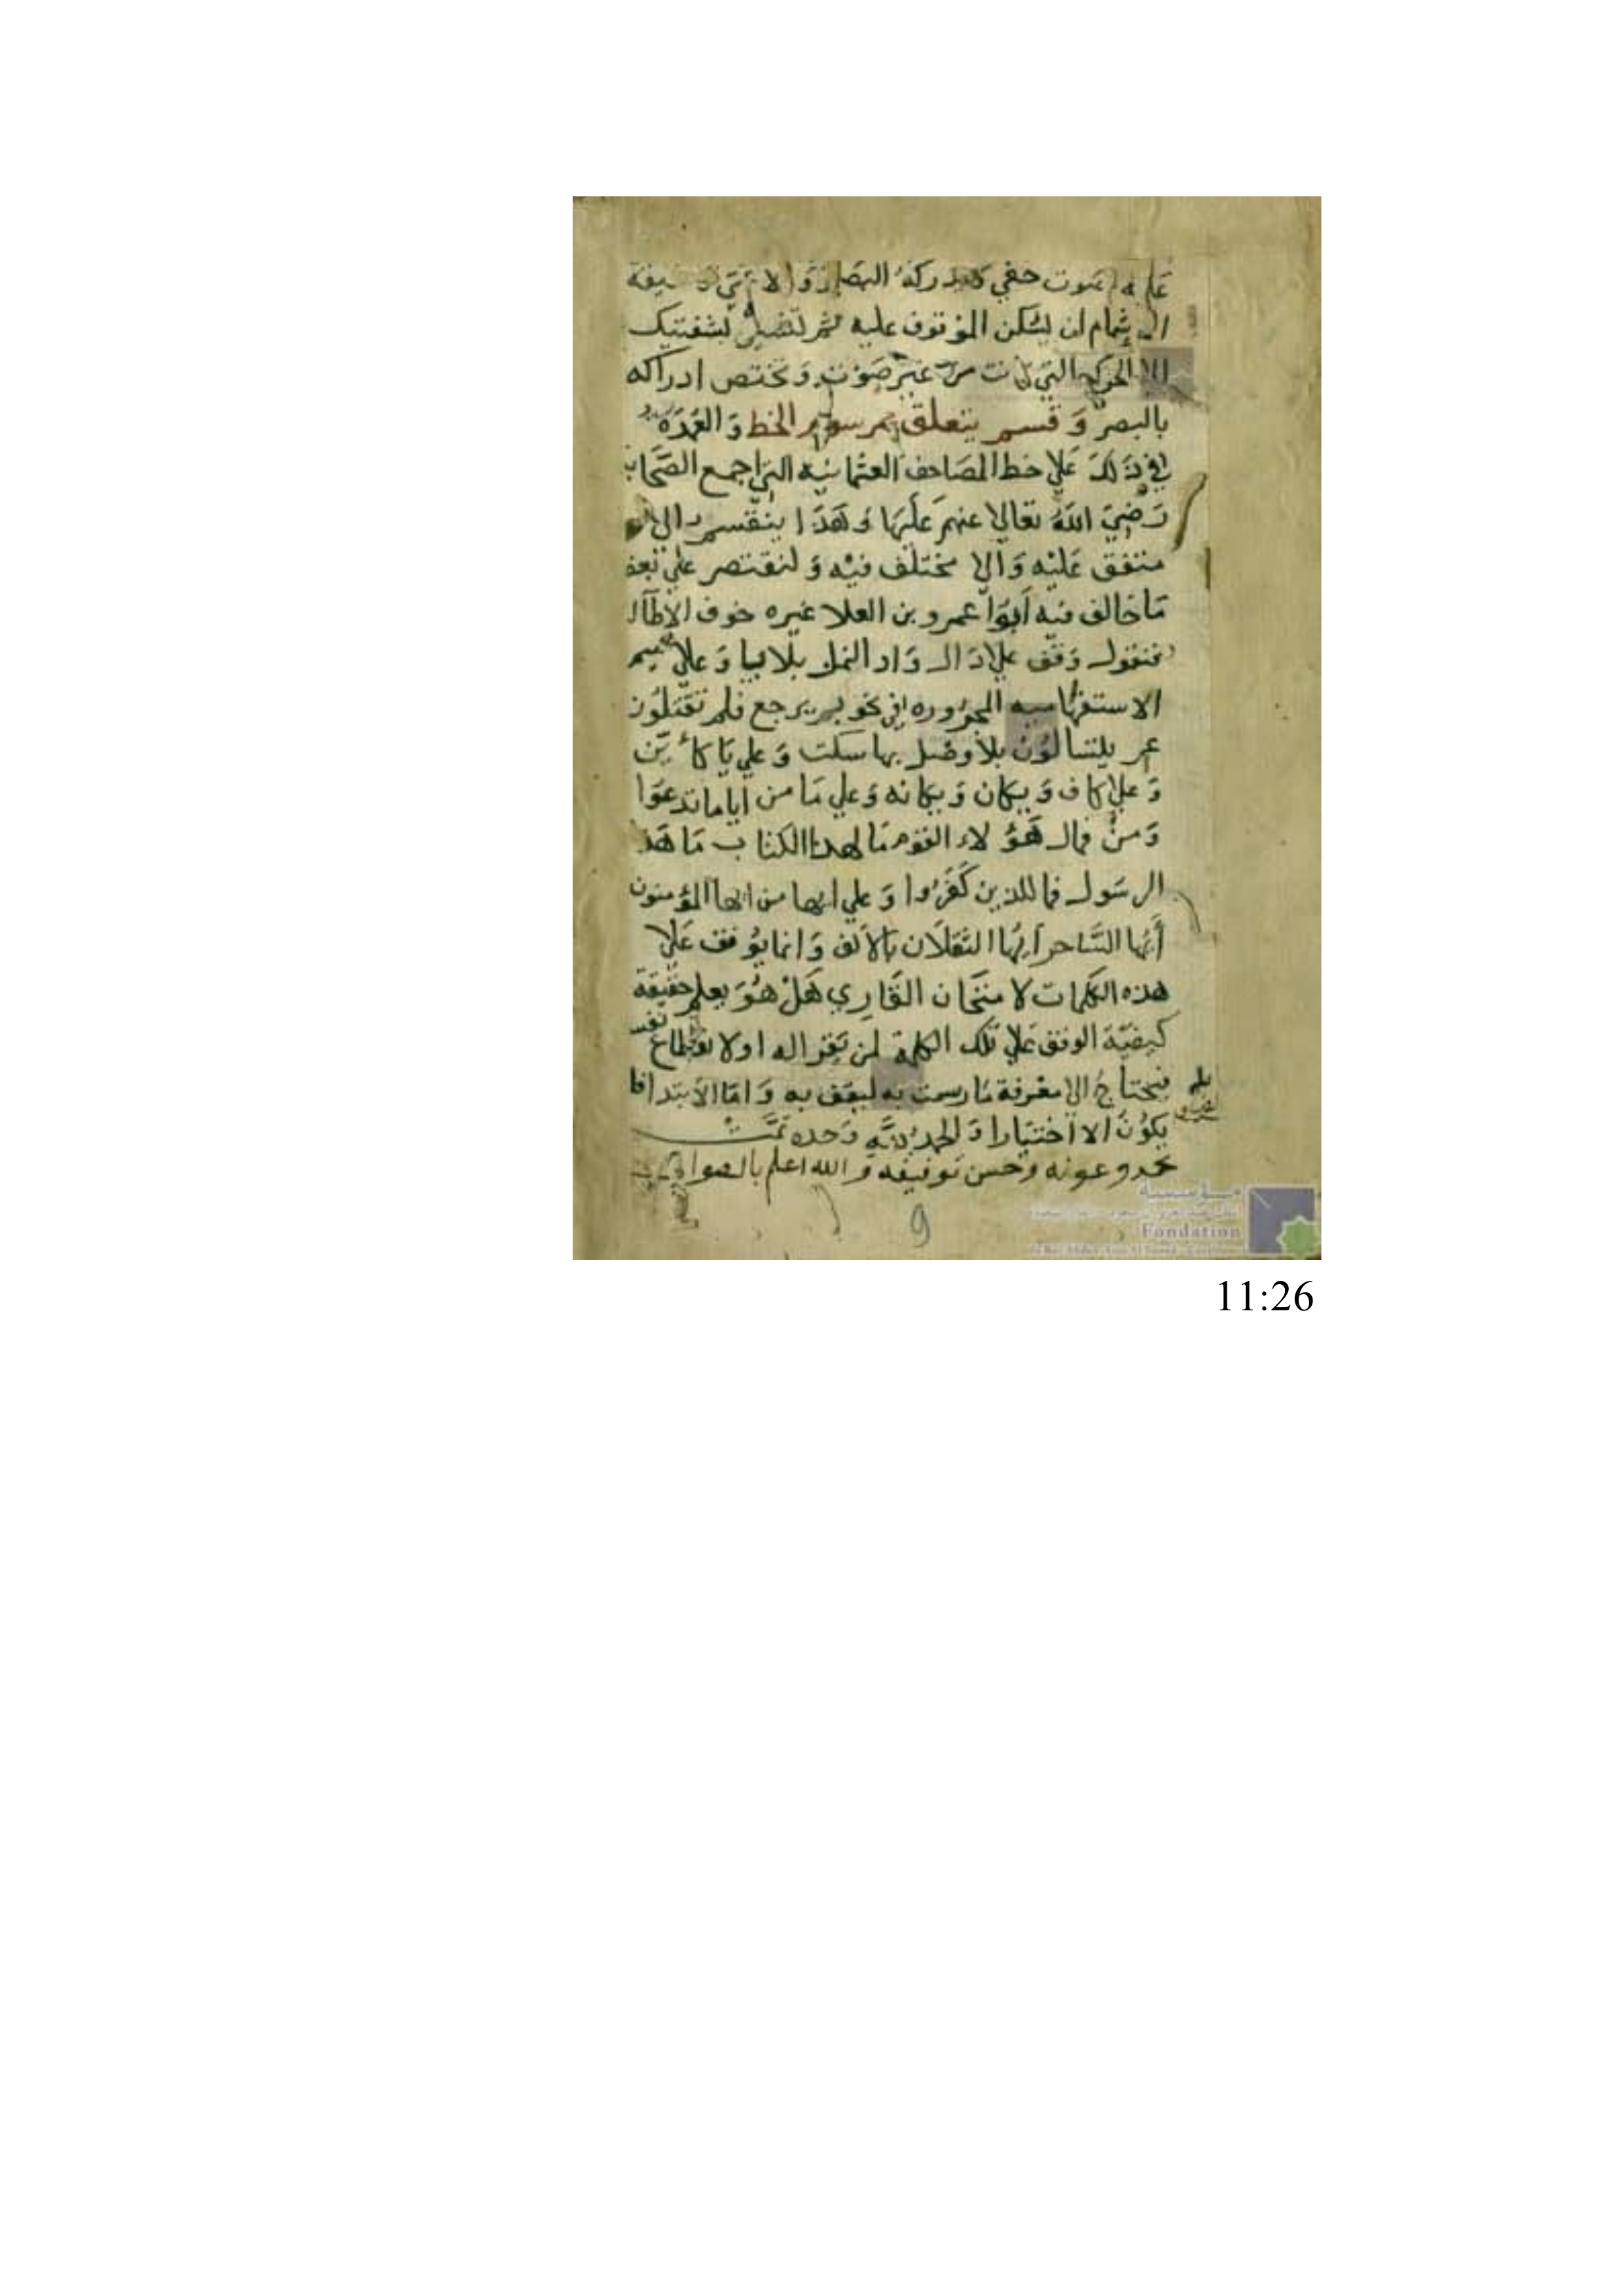 بصوت خفي يدركه
ان يسكن الموقوف عليه ثم تشير بشفتيك
الحركه التي كانت من غير صوت وتختص ادراكه
بالبصر وقسم يتعلق بمرسوم الخط والعمدة
في ذلك علي خط المصاحف العثمانيه التي اجمع
رضي الله تعالي عنهم عليها وهذا ينقسم الي
متفق عليه والا مختلف فيه ولنقتصر علي بعض
ما خالف فيه ابوا عمرو بن العلا غيره خوف
فنقول وقف علي دال واد النمل بلا يا وعلي ميم
الاستفهاميه المجروره في نحو بم يرجع فلم تقتلون
عم يتسالون بلا وصل بها سكت وعلي يا كأين
وعلي كاف ويكان ويكانه وعلي ما من اياما تدعوا
ومن فمال هؤلاء القوم مال هذا الكتاب مال هذا
الرسول فمال الذين كفروا وعلي ايها من ايها المؤمنون
أيها الساحر ايها الثقلان بالالف وانما يوقف علي
هذه الكلمات لامتحان القاري هل هو يعلم حقيقة
كيفية الوقف علي تلك الكلمة لمن يقرا له اولا نقطاع
نفس
فيحتاج الي معرفة ما رسمت به ليقف به واما الابتدا فلا
يكون الا اختيارا والحمد لله وحده تمت
بحمد وعونه وحسن توفيقه والله اعلم بالصواب
9
مؤسسة
Fondation
11:26